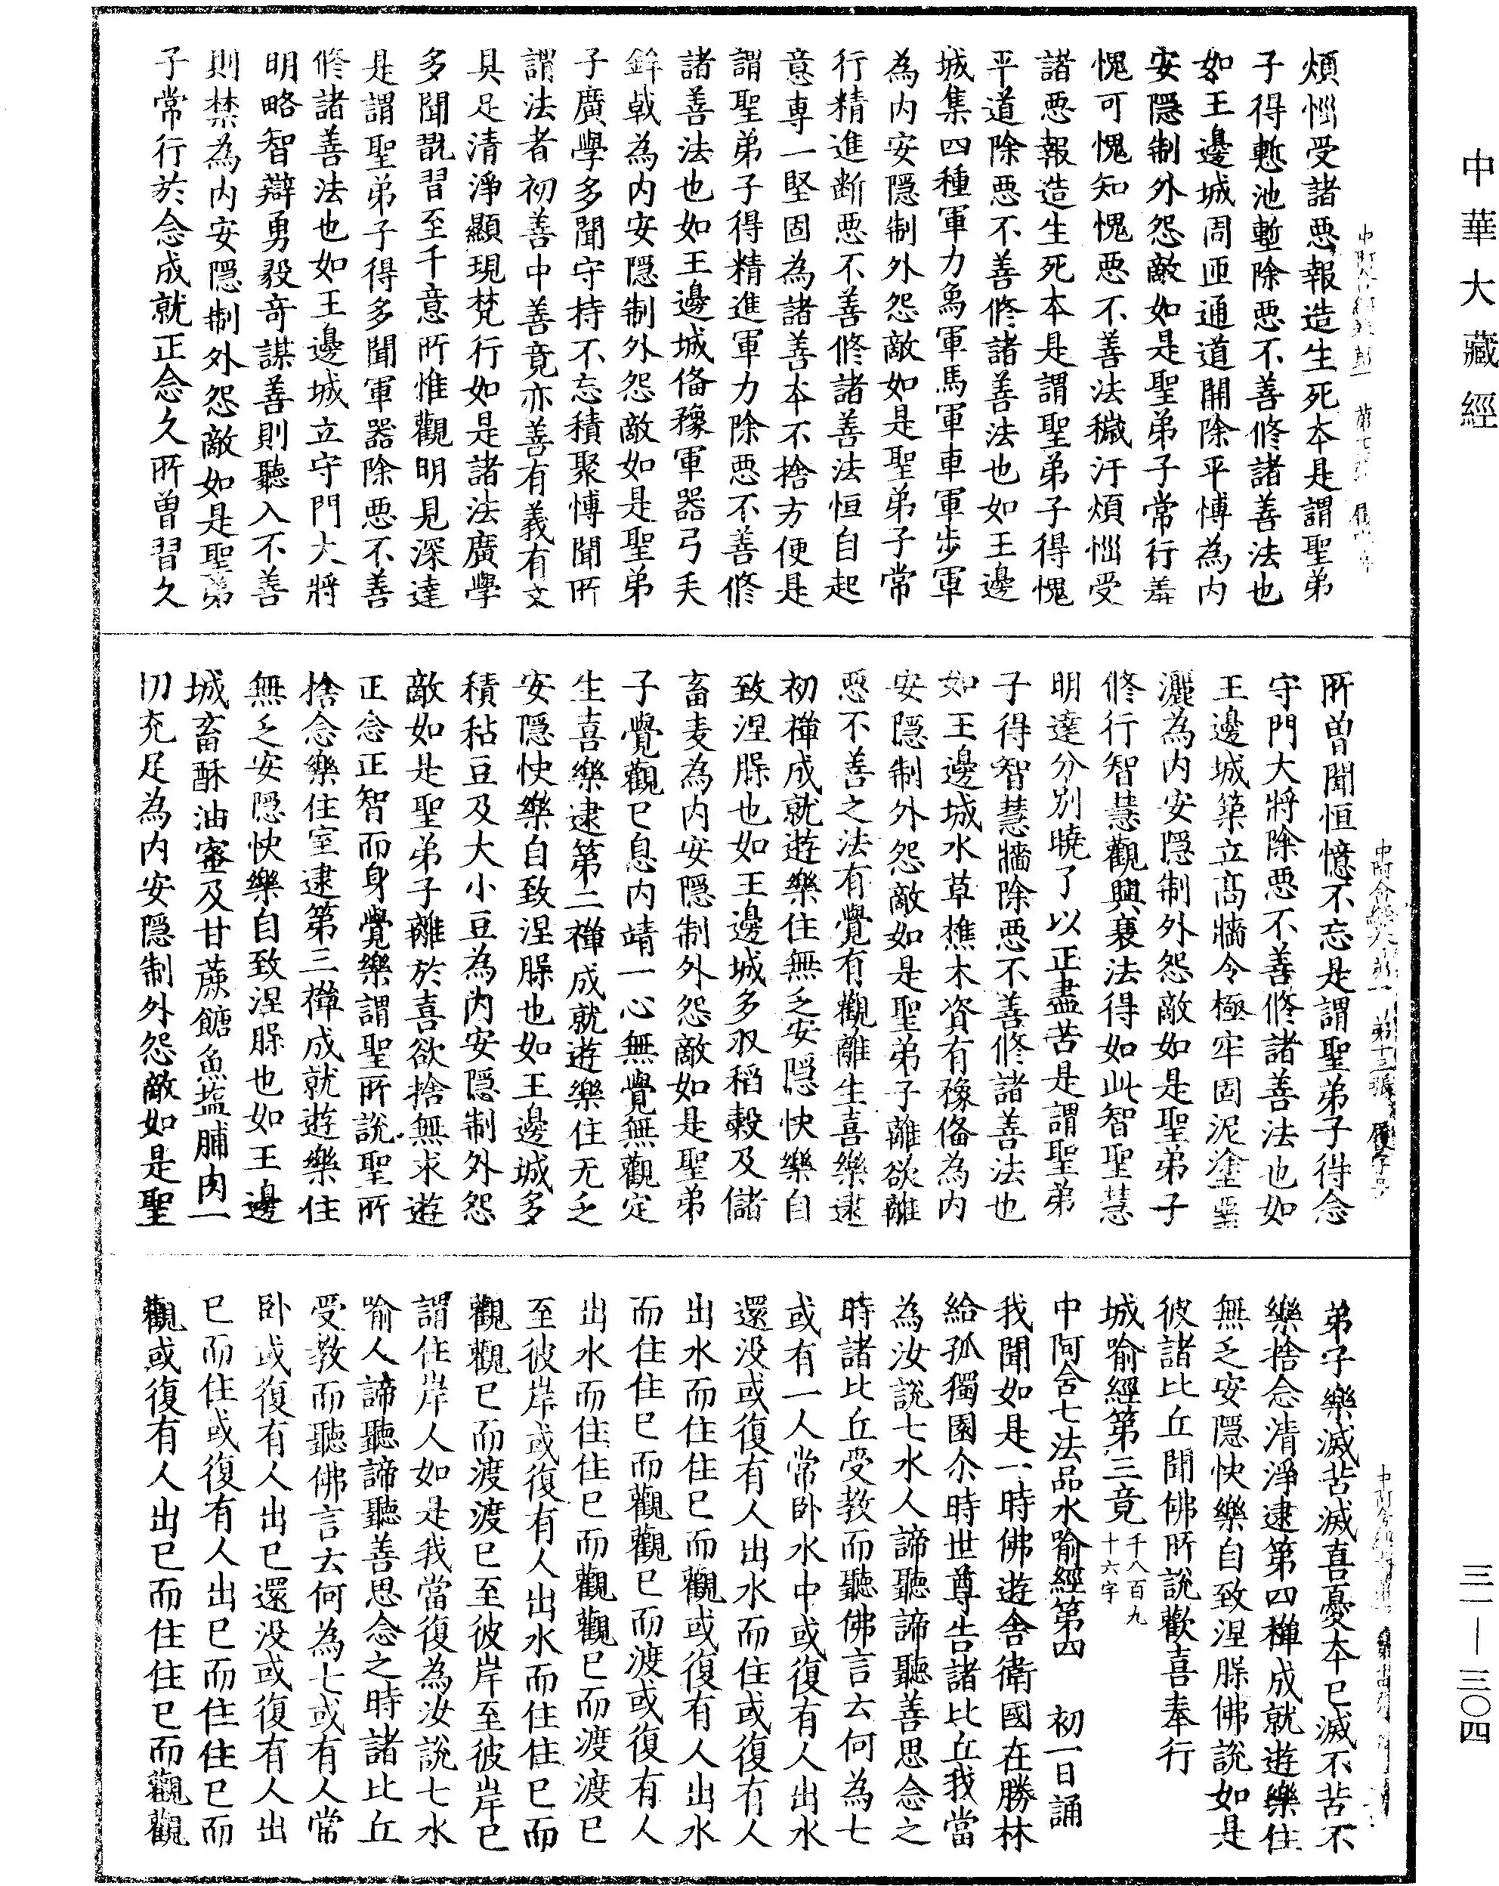 中華大藏經
煩惱受諸惡報造生死本是謂聖弟
子得慙池塹除惡不善修諸善法也
如王邊城周匝通道開除平博為内
安隱制外怨敵如是聖弟子常行羞
愧可愧知愧惡不善法穢汙煩惱受
諸惡報造生死本是謂聖弟子得愧
平道除惡不善修諸善法也如王邊
城集四種軍力象軍馬軍車軍步軍
為内安隱制外怨敵如是聖弟子常
行精進斷惡不善修諸善法恒自起
意專一堅固為諸善本不捨方便是
謂聖弟子得精進軍力除惡不善修
諸善法也如王邊城俻豫軍器弓矢
鉾戟為内安隱制外怨敵如是聖弟
子廣學多聞守持不忘積聚博聞所
謂法者初善中善竟亦善有義有文
具足清淨顯現梵行如是諸法廣學
多聞翫習至千意所惟觀明見深達
是謂聖弟子得多聞軍器除惡不善
修諸善法也如王邊城立守門大將
明略智辯勇毅奇謀善則聽入不善
則禁為内安隱制外怨敵如是聖弟
子常行於念成就正念久所曾習久
中阿含經卷第一 第十三張 履字号
所曾聞恒憶不忘是謂聖弟子得念
守門大將除惡不善修諸善法也如
王邊城築立高牆令極牢固泥塗堊
灑為内安隱制外怨敵如是聖弟子
修行智慧觀興衰法得如此智聖慧
明達分別曉了以正盡苦是謂聖弟
子得智慧牆除惡不善修諸善法也
如王邊城水草樵木資有豫俻為内
安隱制外怨敵如是聖弟子離欲離
惡不善之法有覺有觀離生喜樂逮
初禪成就遊樂住無乏安隱快樂自
致涅槃也如王邊城多収稻穀及儲
畜麦為内安隱制外怨敵如是聖弟
子覺觀已息内靖一心無覺無觀定
生喜樂逮第二禪成就遊樂住无乏
安隱快樂自致涅槃也如王邊城多
積秥豆及大小豆為内安隱制外怨
敵如是聖弟子離於喜欲捨無求遊
正念正智而身覺樂謂聖所說聖所
捨念樂住室逮第三禪成就遊樂住
無乏安隱快樂自致涅槃也如王邊
城畜酥油蜜及甘蔗餹魚塩脯肉一
切充足為内安隱制外怨敵如是聖
弟子樂滅苦滅喜憂本已滅不苦不
樂捨念清淨逮第四禪成就遊樂住
無乏安隱快樂自致涅槃佛說如是
彼諸比丘聞佛所說歡喜奉行
城喻經第三竟 千八百九十六字
中阿含七法品水喻經第四 初一日誦
我聞如是一時佛遊舍衛國在勝林
給孤獨園尒時世尊告諸比丘我當
為汝說七水人諦聽諦聽善思念之
時諸比丘受教而聽佛言云何為七
或有一人常卧水中或復有人出水
還没或復有人出水而住或復有人
出水而住住已而觀或復有人出水
而住住已而觀觀已而渡或復有人
出水而住住已而觀觀已而渡渡已
至彼岸或復有人出水而住住已而
觀觀已而渡渡已至彼岸至彼岸已
謂住岸人如是我當復為汝說七水
喻人諦聽諦聽善思念之時諸比丘
受教而聽佛言云何為七或有人常
卧或復有人出已還没或復有人出
已而住或復有人出已而住住已而
觀或復有人出已而住住已而觀觀
三一—三〇四